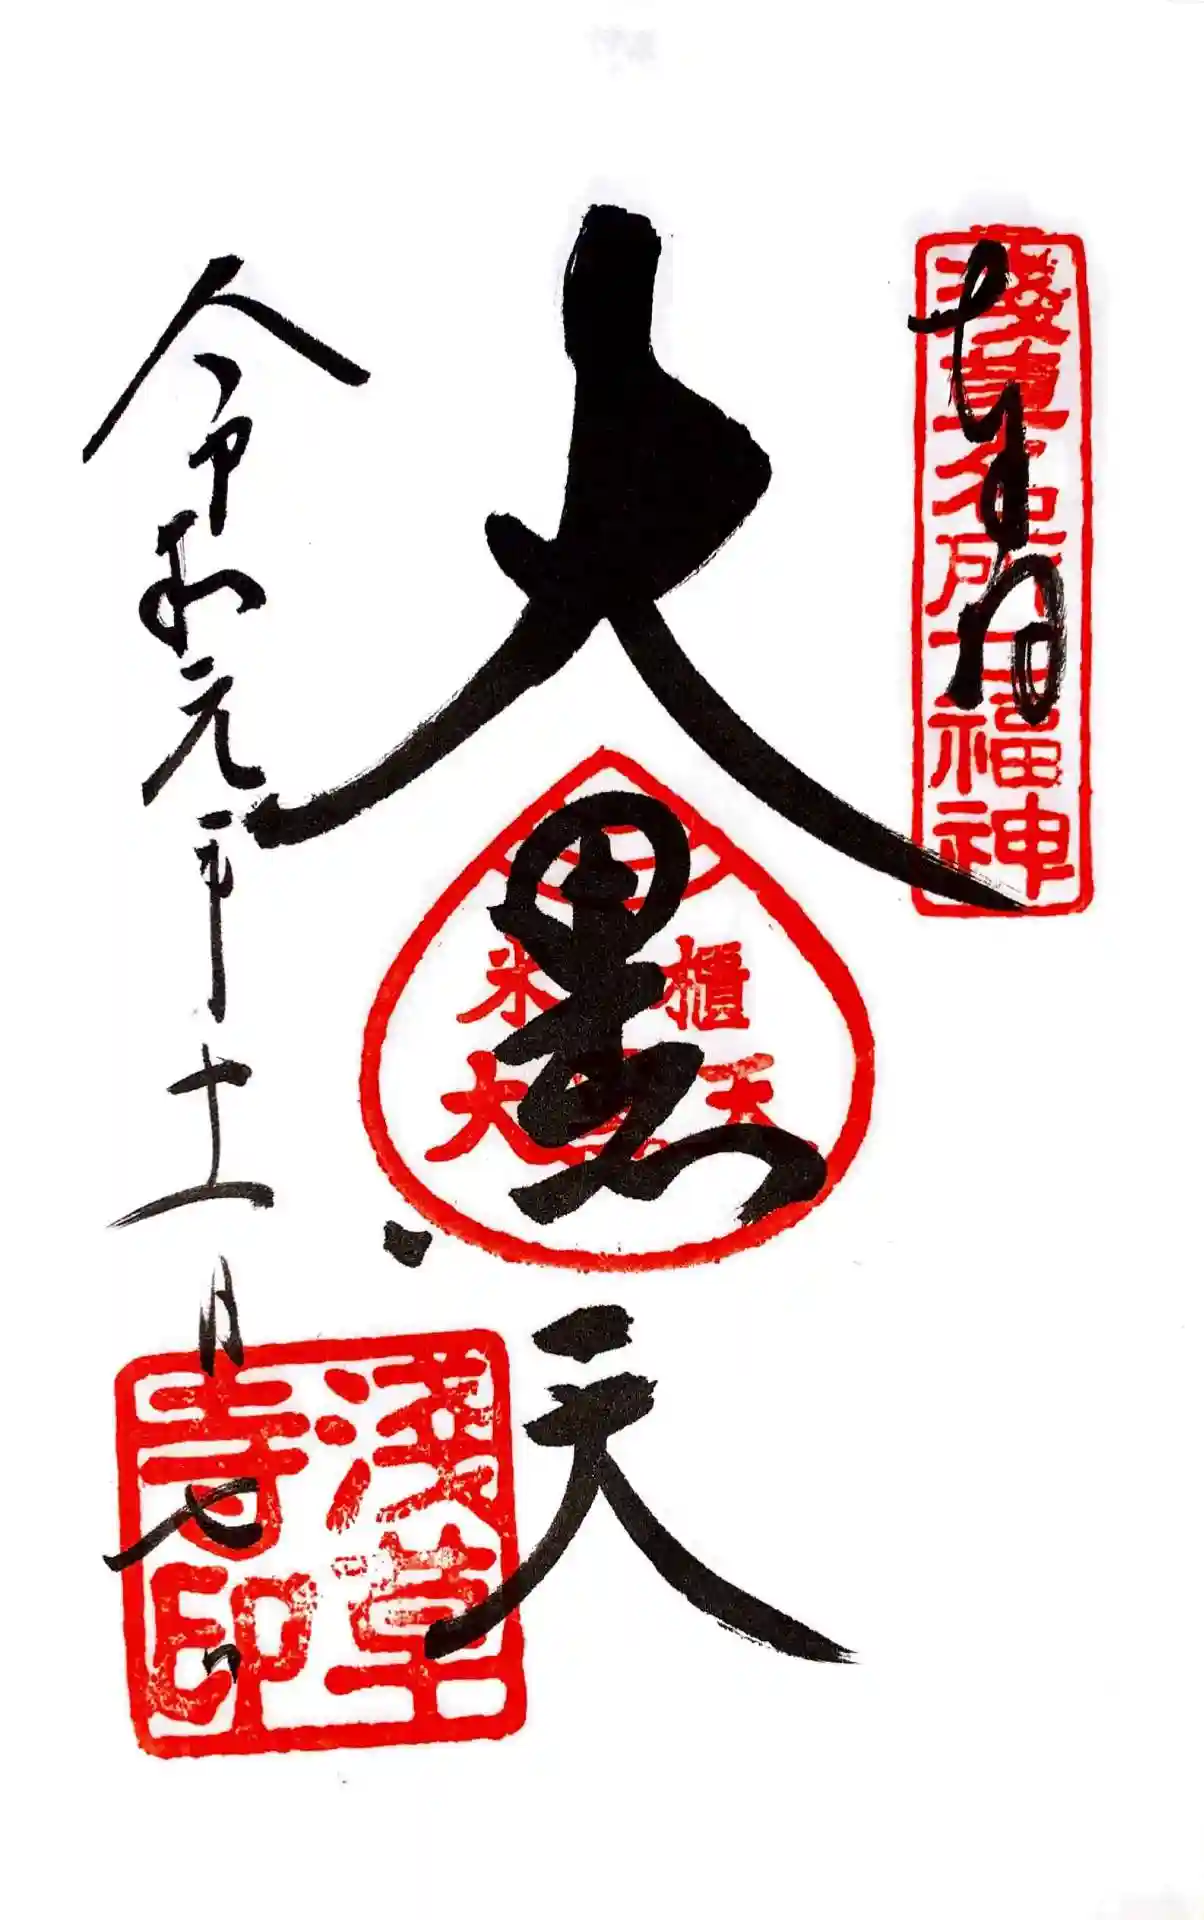 奉拝
浅草名所七福神
大黒天
米櫃
大黒天
令和元年十一月七日
浅草寺印